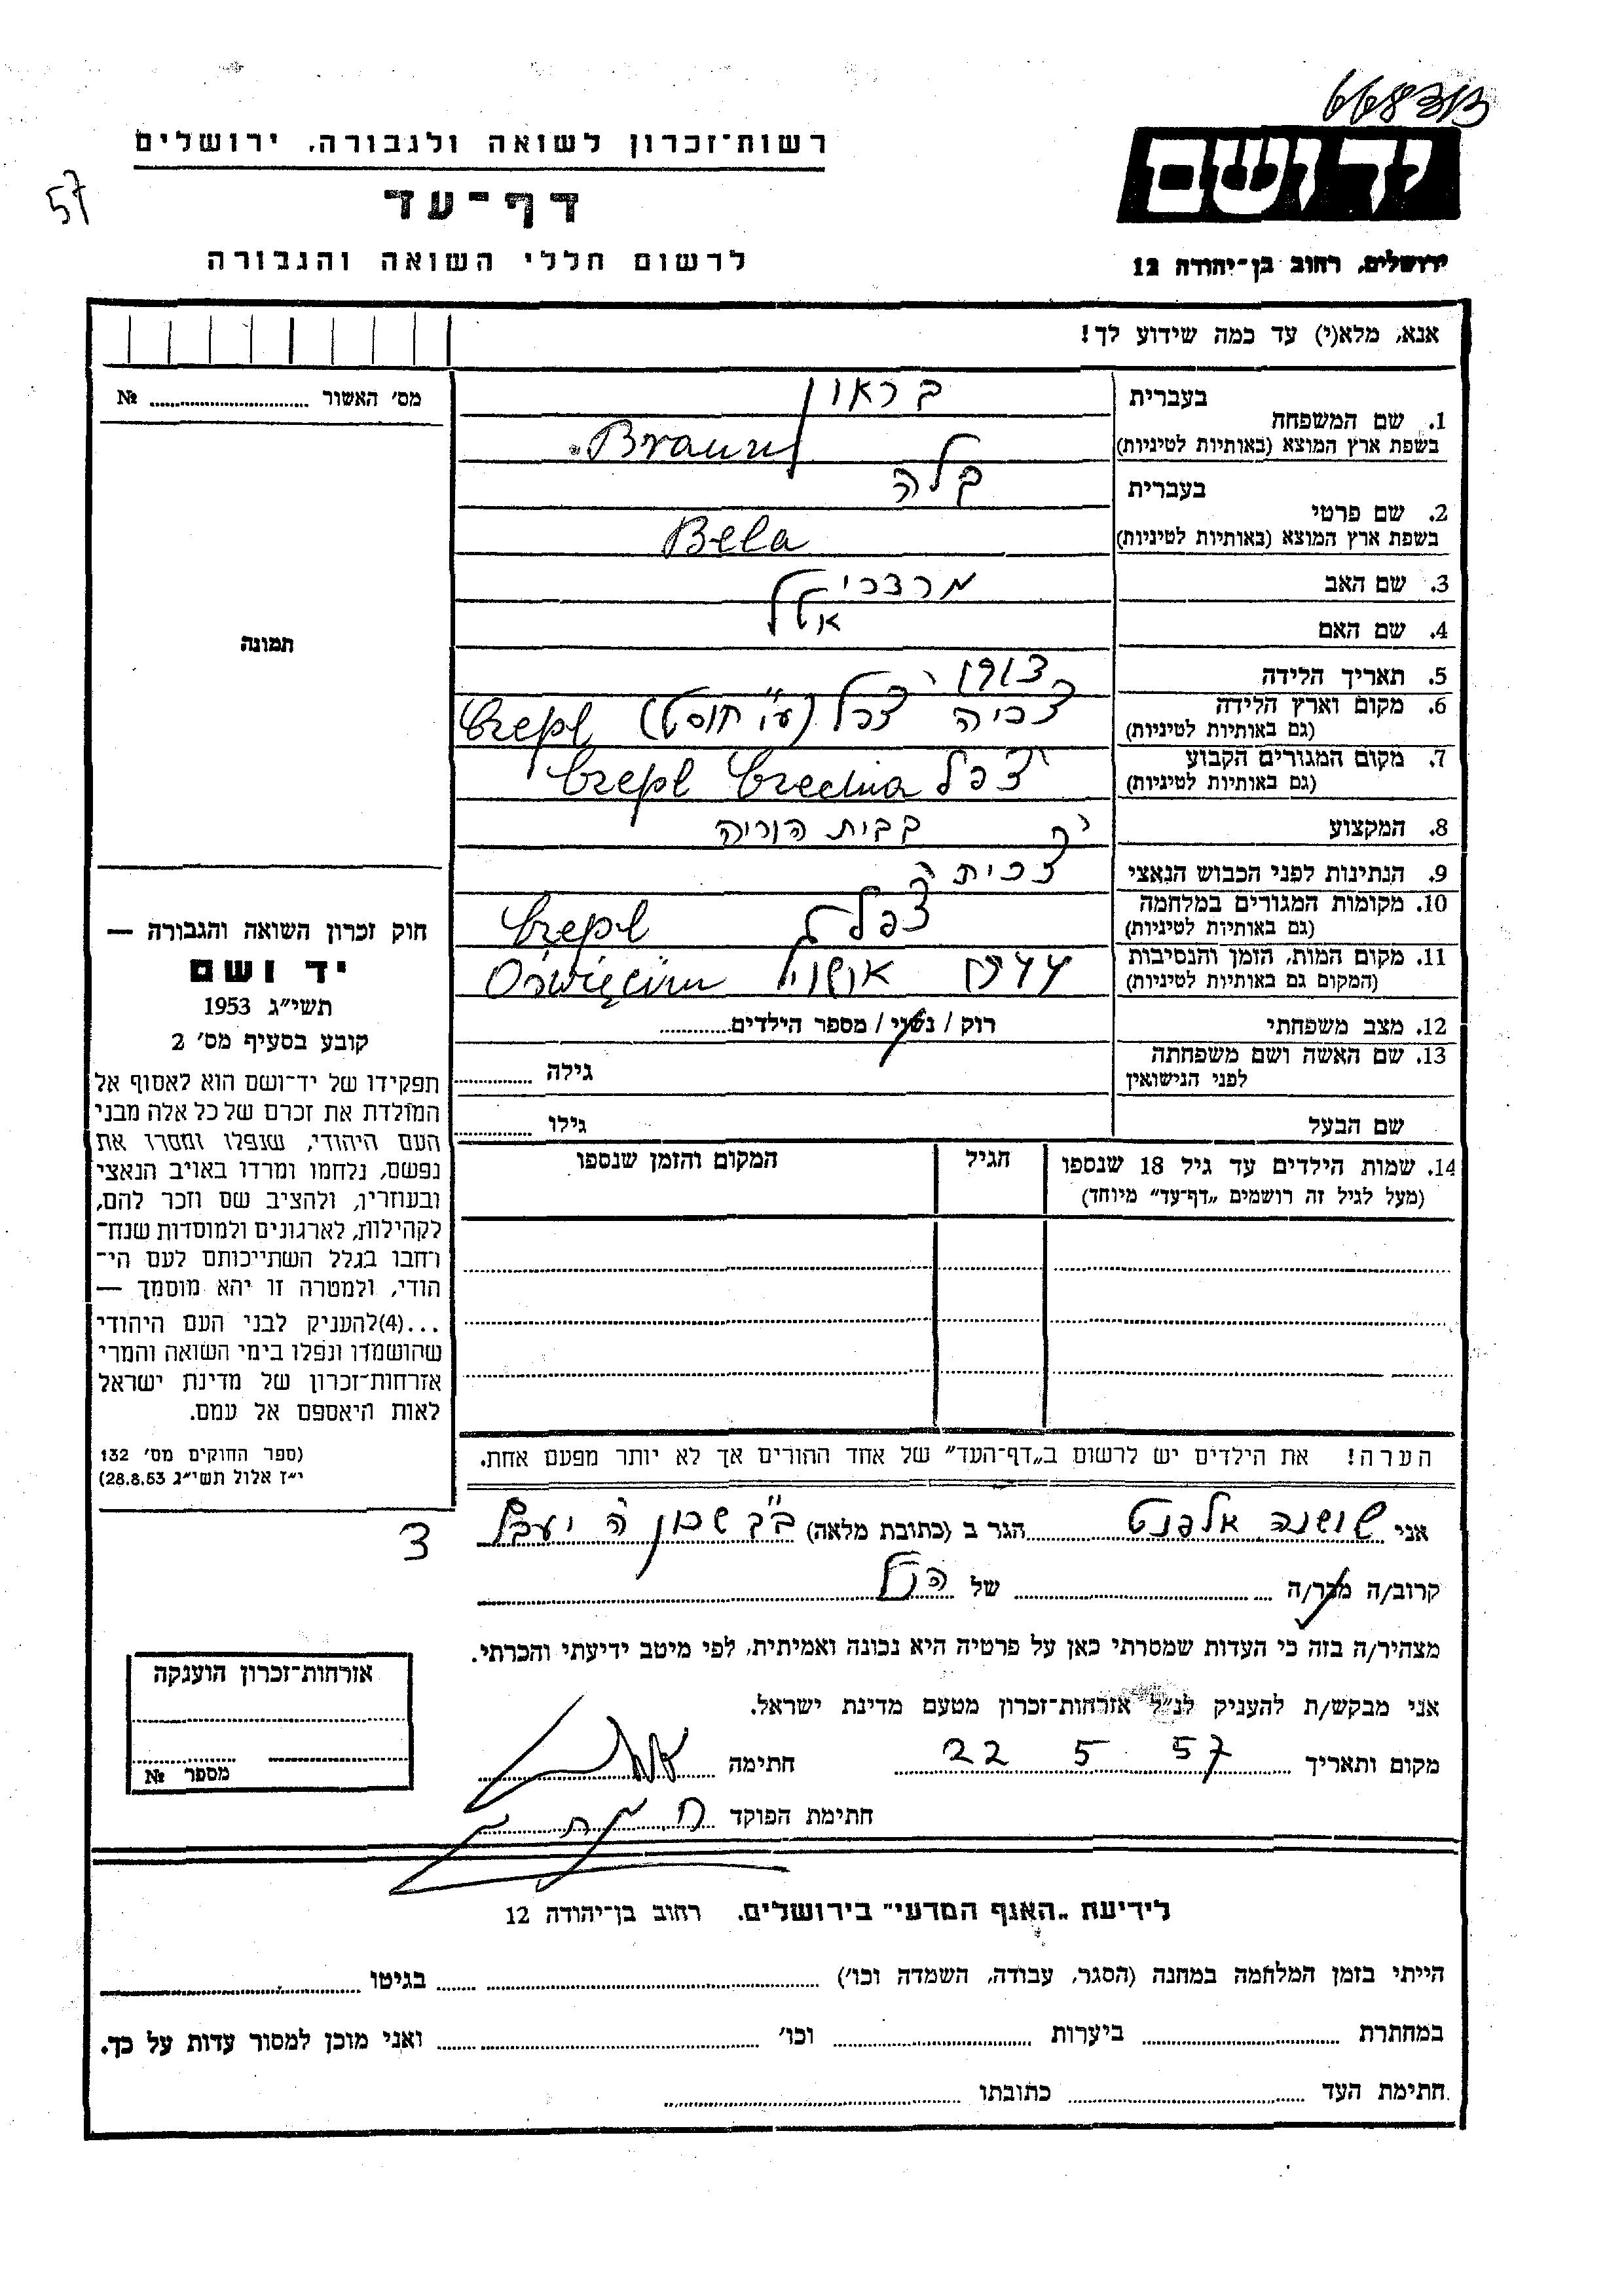 668303
רשות־זכרון לשואה ולגבורה, ירושלים
57
דף־עד
לרשום חללי השואה והגבורה
יד ושם
ירושלים, רחוב בן־יהודה 12
אנא, מלא(י) עד כמה שידוע לך!
מס׳ האשור № 
בעברית
1. שם המשפחה בראון
בשפת ארץ המוצא (באותיות לטיניות) Braun
בעברית
2. שם פרטי בלה
בשפת ארץ המוצא (באותיות לטיניות) Bela
3. שם האב מרדכי
4. שם האם אטל
תמונה
5. תאריך הלידה
6. מקום וארץ הלידה
(גם באותיות לטיניות) (ע״י חוסט)
7. מקום המגורים הקבוע
(גם באותיות לטיניות)
8. המקצוע בבית הוריה
9. הנתינות לפני הכבוש הנאצי צ׳כית
10. מקומות המגורים במלחמה
(גם באותיות לטיניות)
11. מקום המות, הזמן והנסיבות
(המקום גם באותיות לטיניות) Oświęcim
12. מצב משפחתי רוק / נשוי / מספר הילדים
13. שם האשה ושם משפחתה
לפני הנישואין גילה
שם הבעל גילו
14. שמות הילדים עד גיל 18 שנספו הגיל המקום והזמן שנספו
(מעל לגיל זה רושמים „דף־עד״ מיוחד)
חוק זכרון השואה והגבורה —
יד ושם
תשי״ג 1953
קובע בסעיף מס׳ 2
תפקידו של יד־ושם הוא לאסוף אל
המולדת את זכרם של כל אלה מבני
העם היהודי, שנפלו ומסרו את
נפשם, נלחמו ומרדו באויב הנאצי
ובעוזריו, ולהציב שם וזכר להם,
לקהילות, לארגונים ולמוסדות שנח־
רחבו בגלל השתייכותם לעם הי־
הודי, ולמטרה זו יהא מוסמך —
...(4)להעניק לבני העם היהודי
שהושמדו ונפלו בימי השואה והמרי
אזרחות־זכרון של מדינת ישראל
לאות היאספם אל עמם.
(ספר החוקים מס׳ 132
י״ז אלול תשי״ג 28.8.53)
הערה! את הילדים יש לרשום ב„דף־העד״ של אחד ההורים אך לא יותר מפעם אחת.
אני שושנה הגר ב (כתובת מלאה) ב״ב שכון ה
קרוב/ה מכר/ה של הנ״ל
מצהיר/ה בזה כי העדות שמסרתי כאן על פרטיה היא נכונה ואמיתית, לפי מיטב ידיעתי והכרתי.
אני מבקש/ת להעניק לנ״ל אזרחות־זכרון מטעם מדינת ישראל.
מקום ותאריך 22 5 57 חתימה
חתימת הפוקד
אזרחות־זכרון הוענקה
מספר №
לידיעת „האגף המדעי״ בירושלים, רחוב בן־יהודה 12
הייתי בזמן המלחמה במחנה (הסגר, עבודה, השמדה וכו׳) בגיטו
במחתרת ביערות וכו׳ ואני מוכן למסור עדות על כך.
חתימת העד כתובתו